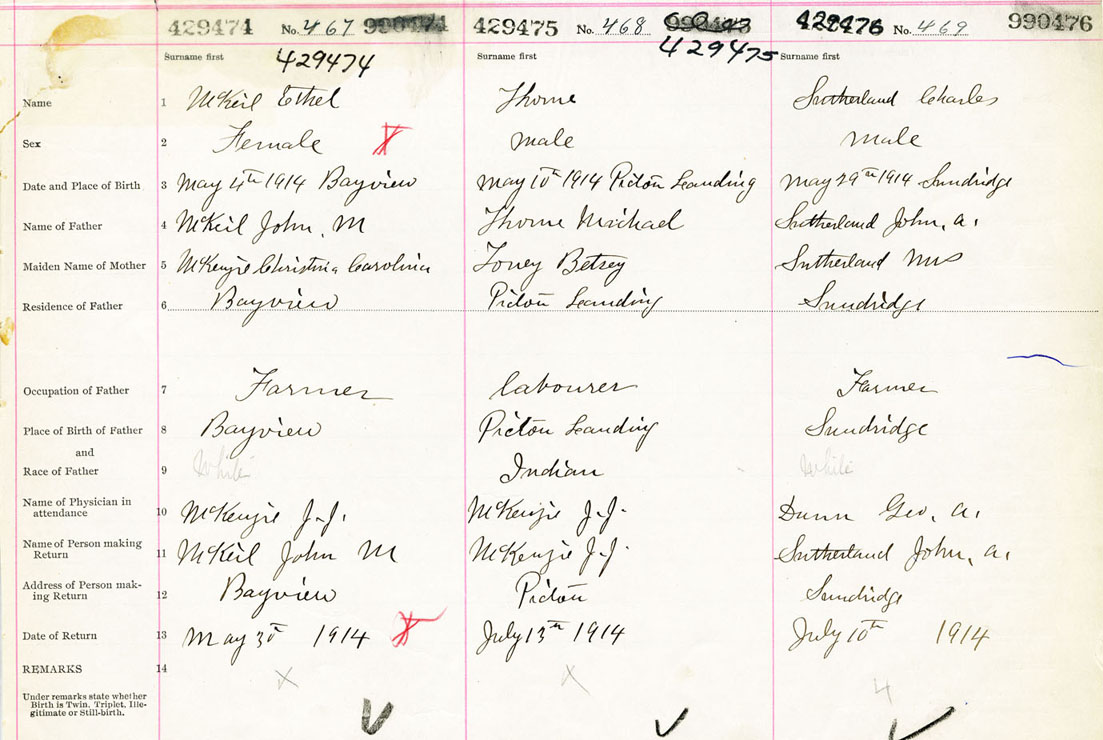 429474 No. 467 990474 429475 No. 468 990475 429476 No. 469 990476
Surname first 429474 Surname first 429475 Surname first
Name 1 McKeil Ethel Thome Sutherland Charles
Sex 2 Female male male
Date and Place of Birth 3 May 4th 1914 Bayview May 10th 1914 Pictou Leanding May 29th 1914 Sundridge
Name of Father 4 McKeil John, M Thome Michael Sutherland John, A.
Maiden Name of Mother 5 McKenzie Christina Carolina Toney Betsey Sutherland Mrs
Residence of Father 6 Bayview Pictou Leanding Sundridge
Occupation of Father 7 Farmer labourer Farmer
Place of Birth of Father 8 Bayview Pictou Leanding Sundridge
and
Race of Father 9 White Indian White
Name of Physician in
attendance 10 McKenzie J.J. McKenzie J.J. Dunn Geo, A.
Name of Person making
Return 11 McKeil John M McKenzie J.J. Sutherland John, A.
Address of Person mak-
ing Return 12 Bayview Pictou Sundridge
Date of Return 13 May 30 1914 July 13th 1914 July 10th 1914
REMARKS 14 x x 4
Under remarks state whether
Birth is Twin, Triplet, Ille-
gitimate or Still-birth.